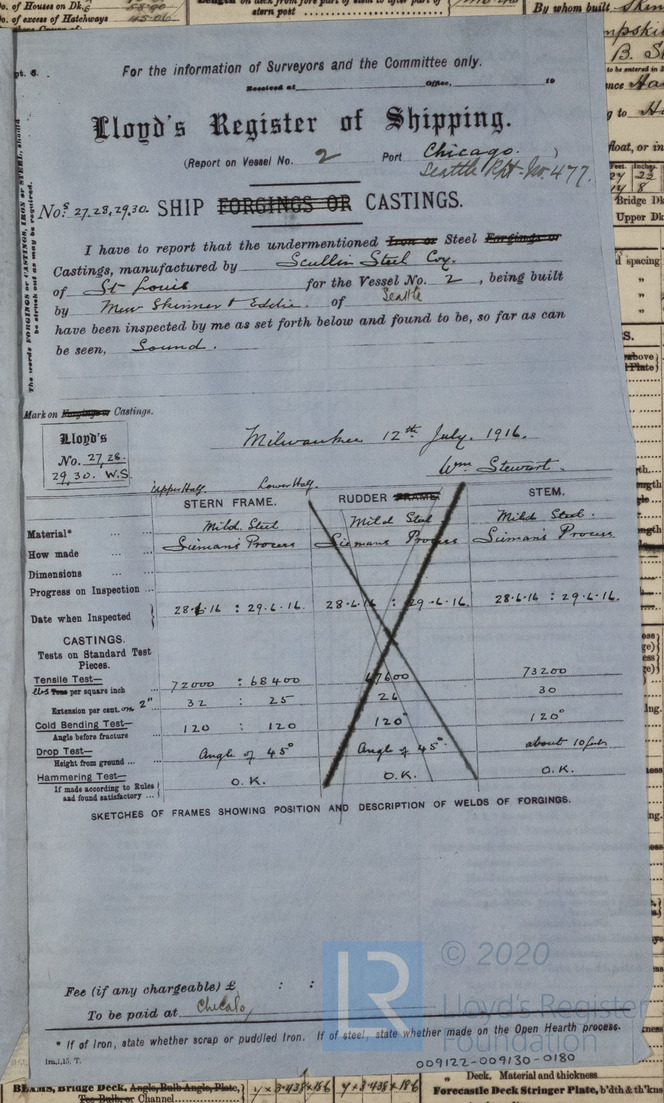 o. of Houses on Dk.
o. of excess of Hatchways 45.06
Length on deck from fore part of stem to after part of
stern post
By whom built Skin
pt. 6.
For the information of Surveyors and the Committee only.
Received at Office, 19
Lloyd's Register of Shipping.
(Report on Vessel No. 2 Port Chicago. )
Seattle Rpt. No. 477.
Nos. 27.28,29,30. SHIP FORGINGS OR CASTINGS.
The words FORGINGS or CASTINGS, IRON or STEEL, should
be struck out as may be required.
I have to report that the undermentioned Iron or Steel Forgings or
Castings, manufactured by Scullin Steel Coy.
of St Louis for the Vessel No. 2, being built
by Messrs Skinner & Eddie of Seattle
have been inspected by me as set forth below and found to be, so far as can
be seen, Sound.
Mark on Forgings or Castings.
Lloyd's
No. 27,28.
29,30. W.S.
Milwaukee 12th July, 1916.
Wm Stewart.
Upper Half. Lower Half.
STERN FRAME. RUDDER FRAME. STEM.
Material* ... ... Mild Steel Mild Steel Mild Steel.
How made ... ... Siemans Process Siemans Process Siemans Process
Dimensions ... ...
Progress on Inspection ...
Date when Inspected 28.6.16 : 29.6.16. 28.6.16 : 29.6.16. 28.6.16 : 29.6.16.
CASTINGS.
Tests on Standard Test
Pieces.
Tensile Test— 72000 : 68400 67600 73200
Lbs Tons per square inch
Extension per cent. on 2" 32 : 25 26 30
Cold Bending Test— 120 : 120 120° 120°
Angle before fracture
Drop Test— Angle of 45° Angle of 45° about 10 feet
Height from ground ...
Hammering Test— O.K. O.K. O.K.
If made according to Rules
and found satisfactory ...
SKETCHES OF FRAMES SHOWING POSITION AND DESCRIPTION OF WELDS OF FORGINGS.
Fee (if any chargeable) £ : :
To be paid at Chicago
* If of Iron, state whether scrap or puddled Iron. If of steel, state whether made on the Open Hearth process.
1m,1,15. T.
© 2020
LR Lloyd's Register
Foundation
009122-009130-0180
BEAMS, Bridge Deck, Angle, Bulb Angle, Plate,
Tee Bulb, or Channel
Deck, Material and thickness
Forecastle Deck Stringer Plate, b'dth & th'kns